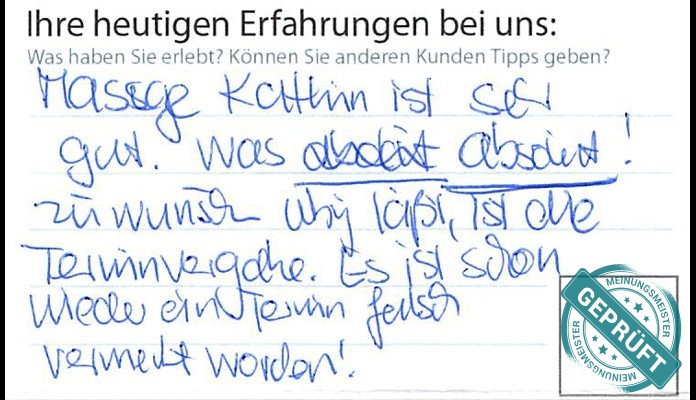 Ihre heutigen Erfahrungen bei uns:
Was haben Sie erlebt? Können Sie anderen Kunden Tipps geben?
Massage Kathrin ist sehr
gut. Was absolut absolut!
zu wünsch übrig läßt, ist die
Terminvergabe. Es ist schon
wieder ein Termin falsch
vermerkt worden!
MEINUNGSMEISTER
GEPRÜFT
MEINUNGSMEISTER
MEINUNGSMEISTER